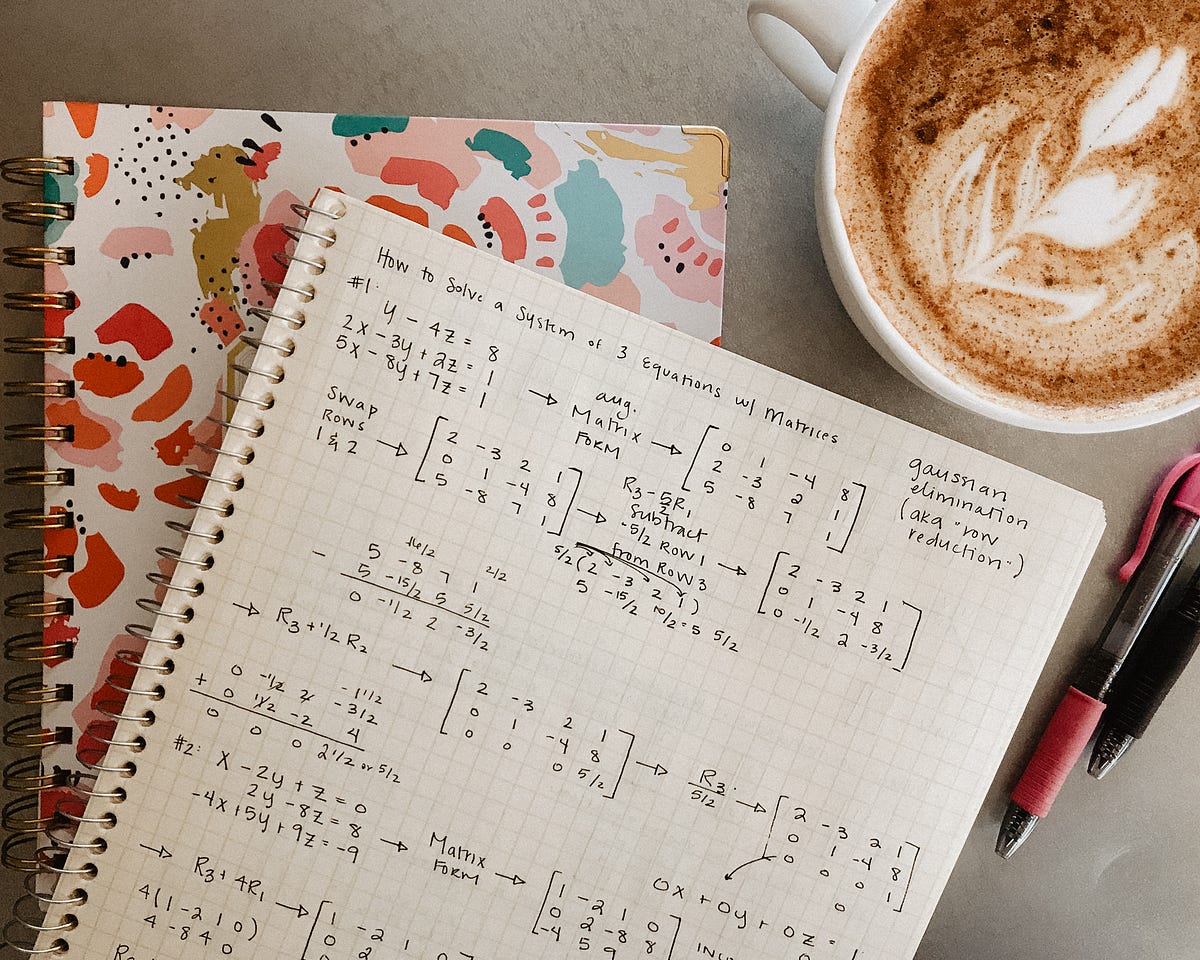 How to Solve a System of 3 Equations w/ Matrices
#1:
y - 4z = 8
2x - 3y + 2z = 1
5x - 8y + 7z = 1
→ aug. Matrix FORM →
[0 1 -4 8
2 -3 2 1
5 -8 7 1]
gaussian
elimination
(aka "row
reduction")
Swap
Rows
1 & 2 →
[2 -3 2 1
0 1 -4 8
5 -8 7 1]
→ R3 - 5/2 R1
Subtract
-5/2 Row 1
from Row 3 →
[2 -3 2 1
0 1 -4 8
0 -1/2 2 -3/2]
5/2 (2 -3 2 1)
5 -15/2 10/2=5 5/2
16/2 2/2
- 5 -8 7 1
5 -15/2 5 5/2
0 -1/2 2 -3/2
→ R3 + 1/2 R2 →
[2 -3 2 1
0 1 -4 8
0 0 0 5/2]
-1 1/2
0 -1/2 2 -3/2
+ 0 1/2 -2 4
0 0 0 2 1/2 or 5/2
→ R3 / 5/2 →
[2 -3 2 1
0 1 -4 8
0 0 0 1]
0x + 0y + 0z = 1
#2:
x - 2y + z = 0
2y - 8z = 8
-4x + 5y + 9z = -9
→ Matrix
FORM →
[1 -2 1 0
0 2 -8 8
-4 5 9
→ R3 + 4R1 →
4(1 -2 1 0)
4 -8 4 0
[1 -2 1 0
0 2